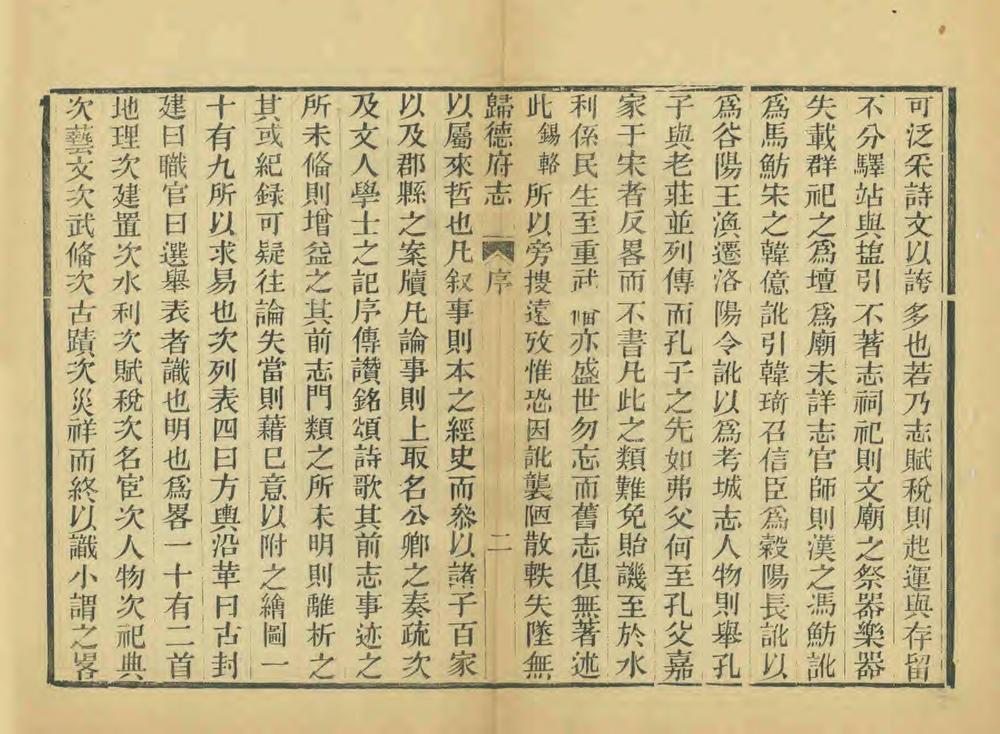 可泛采詩文以誇多也若乃志賦稅則起運與存留
不分驛站與鹽引不著志祠祀則文廟之祭器樂器
失載群祀之為壇為廟未詳志官師則漢之馮魴訛
為馬魴宋之韓億訛引韓琦召信臣為穀陽長訛以
為谷陽王渙遷洛陽令訛以為考城志人物則舉孔
子與老莊並列傳而孔子之先如弗父何至孔父嘉
家于宋者反畧而不書凡此之類難免貽譏至於水
利係民生至重武備亦盛世勿忘而舊志俱無著述
此錫輅所以旁搜遠攷惟恐因訛襲陋散軼失墜無
歸德府志 序 二
以屬來哲也凡叙事則本之經史而叅以諸子百家
以及郡縣之案牘凡論事則上取名公卿之奏疏次
及文人學士之記序傳讚銘頌詩歌其前志事迹之
所未備則增益之其前志門類之所未明則離析之
其或紀録可疑往論失當則藉已意以附之繪圖一
十有九所以求易也次列表四曰方輿沿革曰古封
建曰職官曰選舉表者識也明也為畧一十有二首
地理次建置次水利次賦稅次名宦次人物次祀典
次藝文次武備次古蹟次災祥而終以識小謂之畧